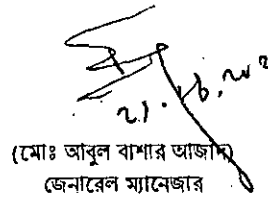 (মোঃ আবুল বাশার আজাদ)
জেনারেল ম্যানেজার